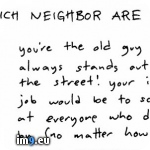 ICH NEIGHBOR ARE
you're the old guy
always stands out
the street! your i
job would be to sc
at everyone who d
by (no matter how
im9.eu